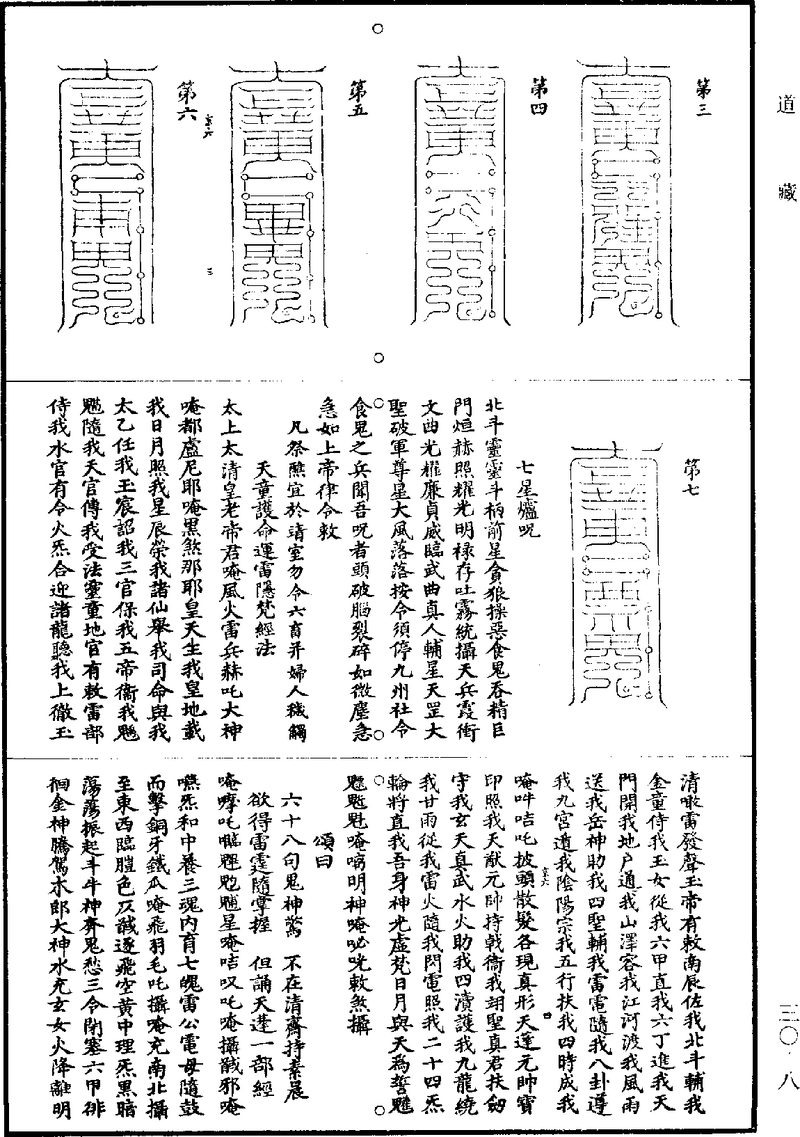 道藏
第三
第四
第五
第六
第七
七星爐呪
北斗靈靈斗柄前星貪狼操惡食鬼吞精巨
門烜赫照耀光明祿存吐霧統攝天兵霞衝
文曲光耀廉貞威臨武曲真人輔星天罡大
聖破軍尊星大風落落按令須停九州社令
食鬼之兵聞吾呪者頭破腦裂碎如微塵急
急如上帝律令敕
凡祭醮宜於靖室勿令六畜并婦人穢觸
天童護命運雷隱梵經法
太上太清皇老帝君唵風火雷兵赫吒大神
唵都盧尼耶唵黑煞那耶皇天生我皇地載
我日月照我星辰榮我諸仙舉我司命與我
太乙任我玉宸詔我三官保我五帝衞我魁
隨我天官傳我受法靈童地官有敕雷部
侍我水官有令火炁合迎諸龍聽我上徹玉
清噉雷發聲玉帝有敕南辰佐我北斗輔我
金童侍我玉女從我六甲直我六丁進我天
門開我地户通我山澤容我江河渡我風雨
送我岳神助我四聖輔我雷電隨我八卦遵
我九宮遁我陰陽宗我五行扶我四時成我
唵吽咭吒披頭散髮各現真形天蓬元帥寶
印照我天猷元帥持戟衞我翊聖真君扶劒
守我玄天真武水火助我四瀆護我九龍繞
我甘雨從我雷火隨我閃電照我二十四炁
輪將直我吾身神光虛梵日月與天爲誓魋
唵嗬明神唵吣咣敕煞攝
頌曰
六十八句鬼神驚　不在清齋持素晨
欲得雷霆隨掌握　但誦天蓬一部經
唵㘄吒星唵咭吒唵攝馘邪唵
嚥炁和中養三魂内育七魄雷公電母隨鼓
而擊銅牙鐵瓜唵飛羽毛吒攝唵充南北攝
至東西臨膛色及誠逐飛空黄中理炁黑暗
蕩蕩振起斗牛神奔鬼愁三令閉塞六甲徘
徊金神騰駕木郎大神水充玄女火降離明
三〇·八